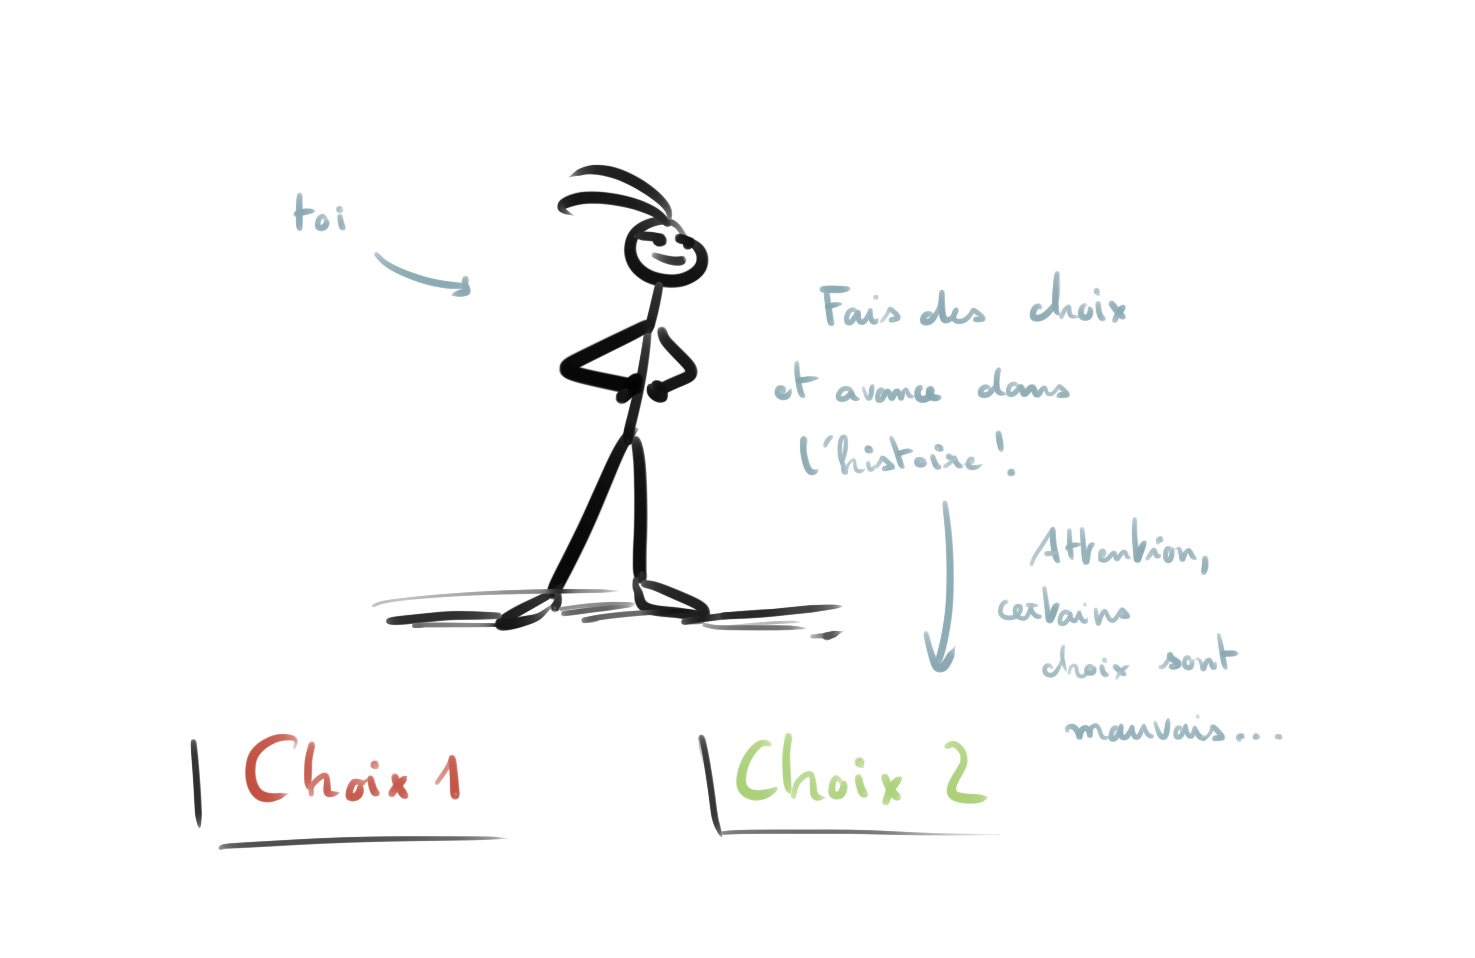 toi
Fais des choix
et avance dans
l'histoire !
Attention,
certains
choix sont
mauvais...
Choix 1
Choix 2